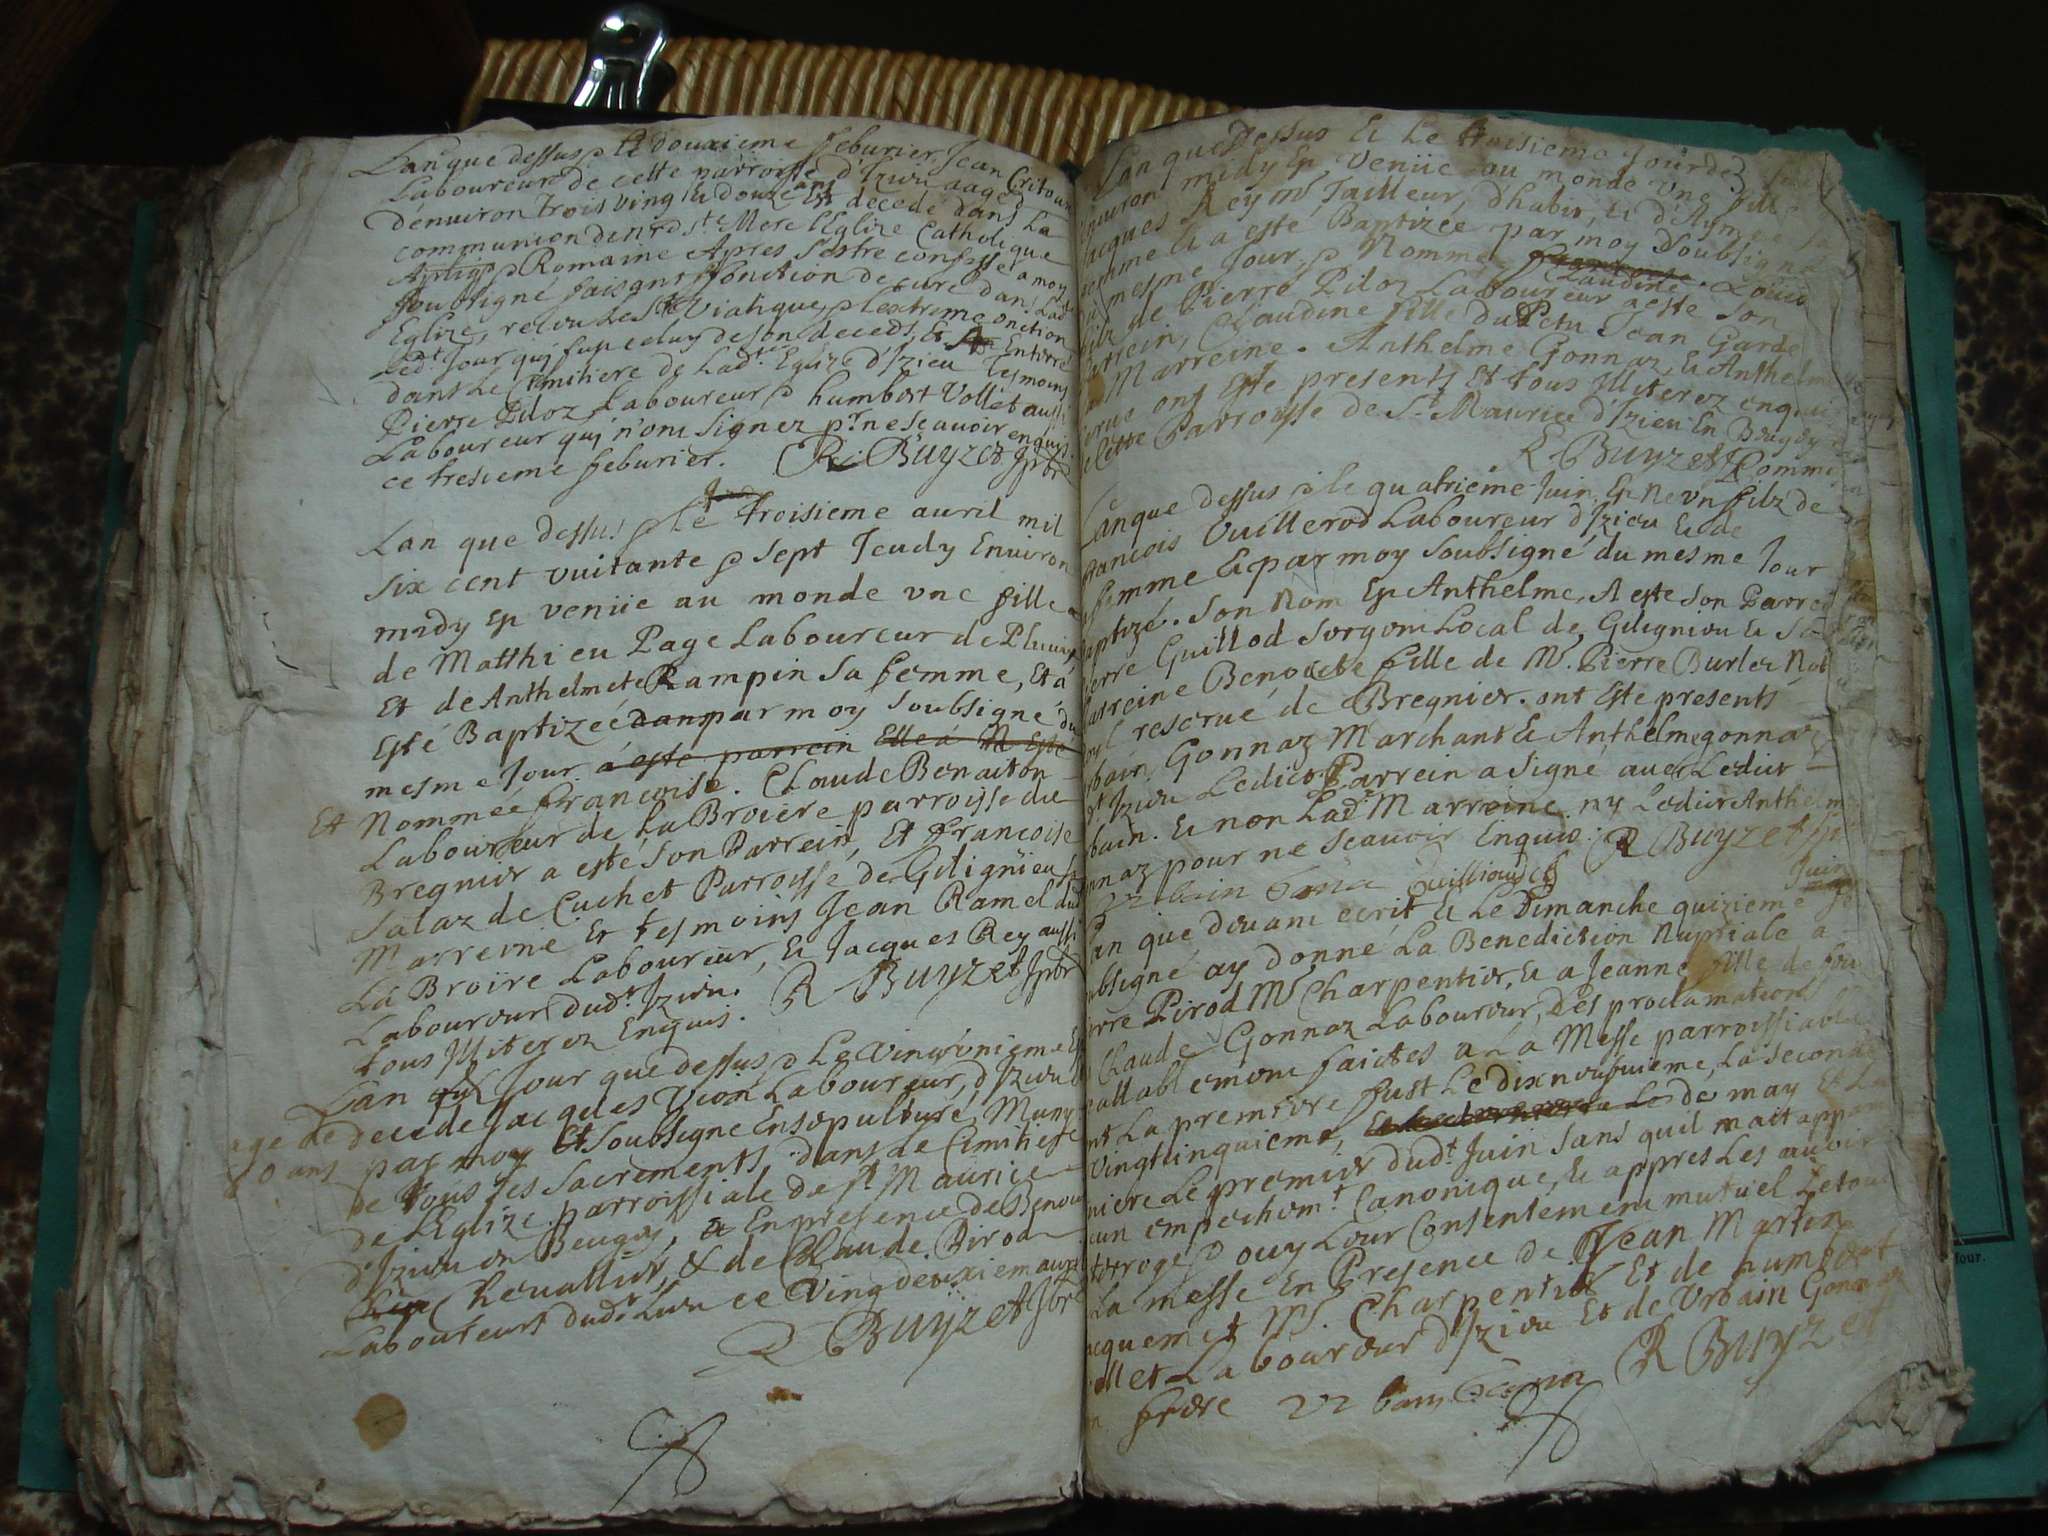 Lan que dessus & le douxieme feburier Jean Critoux
Laboureur de cette parroisse d'Izieu aagé
denuiron trois ving & douze ans Est decedé dans La
communion de nre Ste Mere l'Eglize Catholique
Romaine Apres S'estre confessé a moy
soubsigné faisant fonction de curé dans Ladte
Eglize, receu Le St Viatique, & lextreme onction
Ledt Jour quj fut celuy de son deceds, Et Enterré
dans Le Cimitiere de Ladte Eglize d'Izieu tesmoins
Pierre Piloz Laboureur & humbert Vollet aussi
Laboureur quj n'ont signez pr ne scauoir enquis
ce tresieme feburier. R Buyzet
Lan que dessus & le troisieme auril mil
six cent vuitante & sept Jeudy Enuiron
midy Est venüe au monde vne fille
de Matthieu Page Laboureur de
Et de Anthelmete Rampin sa femme, Et a
Esté Baptizée dans par moy soubsigné du
mesme Jour a esté parrein Elle a N Esté
Et Nommée francoise. Claude Benaiton
Laboureur de La Broiere parroisse de
Bregnier a esté son Parrein, Et francoise
Salaz de Cuchet Parroisse de Gilignieu sa
Marreine Et tesmoins Jean Ramel dud
La Broire Laboureur, & Jacques Rey aussi
Laboureur dudt Izieu.
tous Illiterez Enquis. R Buyzet
Lan & Jour que dessus & Le vintvnieme Est
age de decede Jacques Vion Laboureur, d'Izieu
80 ans par moy soubsigné Ensepulturé, Muny
de tous les sacrements, dans Le Cimitiere
de L'Eglize parroissiale de st Maurice
d'Izieu en Beugey, En presence de Benoit
Cheuallier, & de Claude Pirod
Laboureurs dudt Izieu ce Vingdeuxiem auril
R Buyzet
Lan que Dessus & Le troisieme Jour de
enuiron midy Est Venüe au monde vne fille
Jacques Rey mr Tailleur, d'habit, & d'Aymee sa
femme & a esté Baptizée par moy Soubsigné
du mesme Jour, & Nommée Claudine. Louis
filz de Pierre Piloz Laboureur a esté son
Parrein, Claudine fille du Jean Garde
sa Marreine. Anthelme Gonnaz, & Anthelme
ont Esté presents Et tous Illiterez enquis
de cette Parroisse de St Maurice d'Izieu En Beugey
R Buyzet
Lan que dessus & le quatrieme Juin Est Ne vn filz de
francois Vuillerod Laboureur d'Izieu & de
sa femme & par moy Soubsigné du mesme Jour
baptizé. Son Nom Est Anthelme, A esté Son Parrein
Pierre Guillod Local de Gilignieu & sa
Marreine Benoicte fille de Mr. Pierre Burlet
reserué de Bregnier. ont Esté presents
Gonnaz Marchant & Anthelme gonnaz
dt Izieu Ledict Parrein a signé auec Ledict
bain. & non Ladte Marreine. ny Ledict Anthelme
Gonnaz pour ne scauoir Enquis. R Buyzet
Guilliaud
Juin
Lan que deuant ecrit & Le Dimanche quizieme
soubsigné ay donné La Benediction Nuptiale a
Pierre Pirod Mr Charpentier, & a Jeanne fille de feu
Claude Gonnaz Laboureur, Des proclamations
faictes a La Messe parroissiale
La premiere fust Le dix La seconde
Vingtcinquieme, de may Et La
Le premier dudt Juin sans quil m'ait apparu
empechemt Canonique, & appres Les auoir
& ouy Leur Consentement mutuel Le tout
La messe En Presence de Jean Martin
Jacquemet Mr. Charpentier Et de humbert
Vollet Laboureur d'Izieu Et de Vrbain Gonnaz
frere R Buyzet